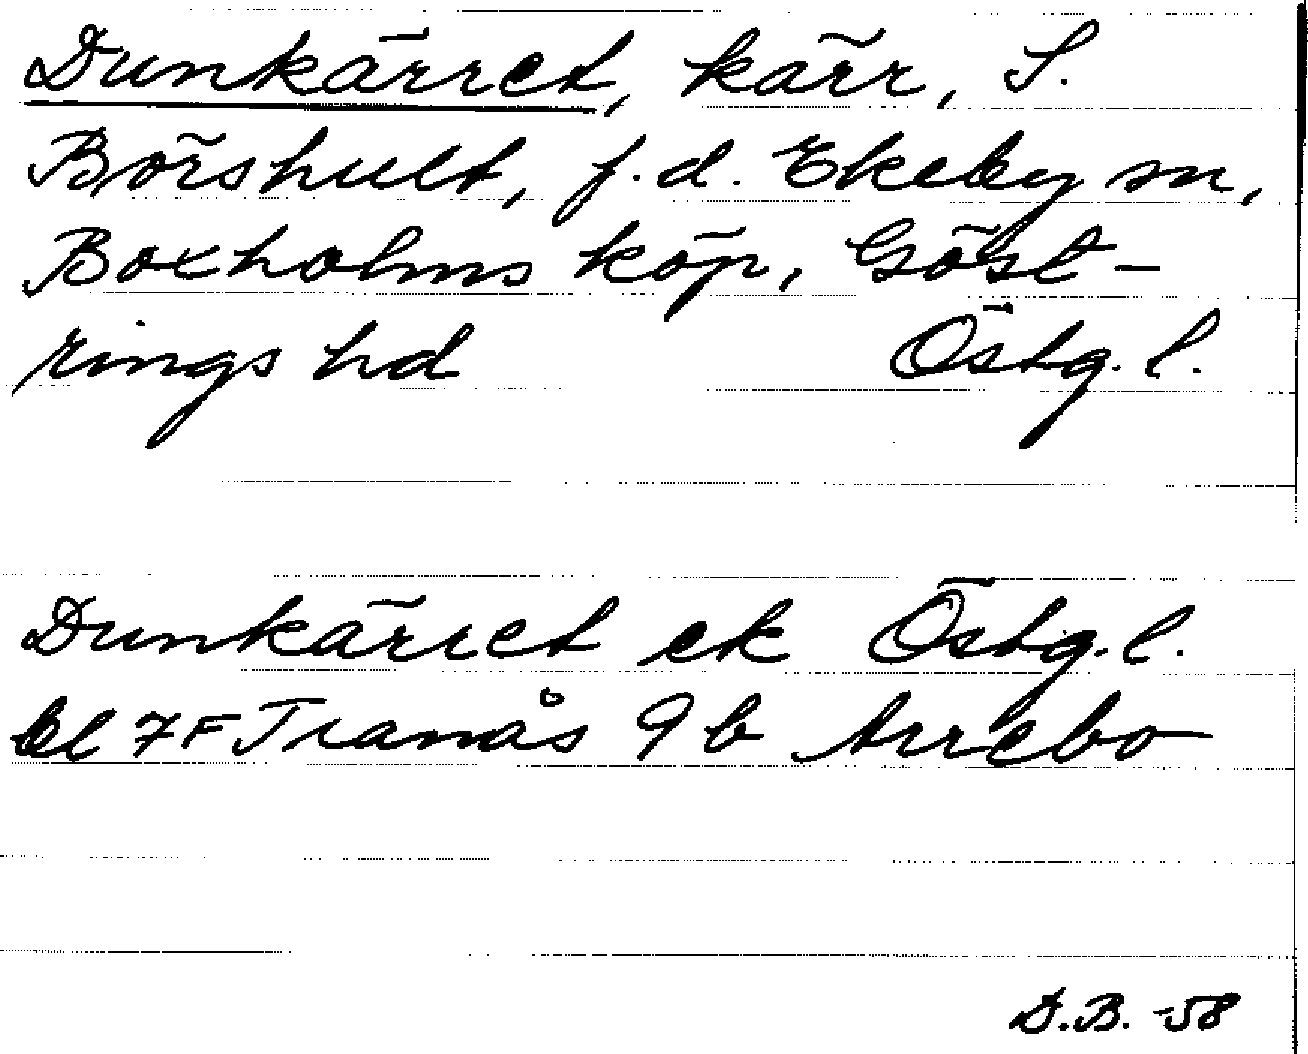 Dunkärret, kärr, S.
Börshult, f.d. Ekeby sn,
Boxholms köp, Göst-
rings hd Östg. l.
Dunkärret ek Östg. l.
bl 7F Tranås 9 b Arrebo
D.B. -58